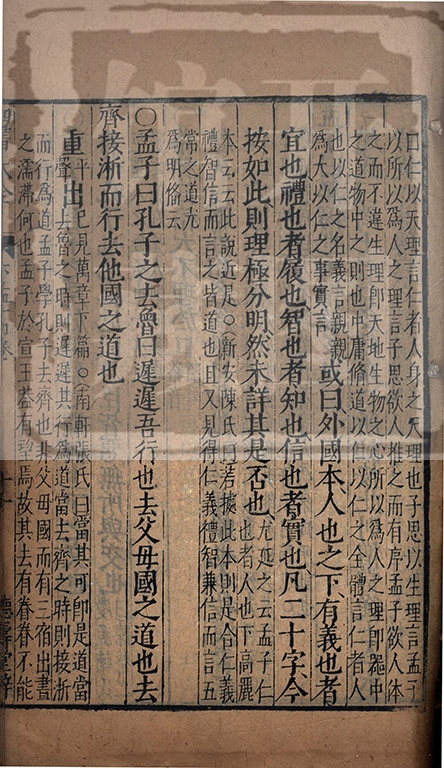 曰仁以天理言仁者人身之天理也子思以生理言孟子
以所以爲人之理言子思欲人推之而有序孟子欲人体
之而不違生理即天地生物之心所以爲人之理即器中
之道物中之則也中庸脩道以仁以仁之全體言仁者人
也以仁之名義言親親
爲大以仁之事實言
或曰外國本人也之下有義也者
宜也禮也者履也智也者知也信也者實也凡二十字今
按如此則理極分明然未詳其是否也
尤延之云孟子仁
也者人也下高麗
本云云此説近是○新安陳氏曰若據此本則是合仁義
禮智信而言之皆道也且又見得仁義禮智兼信而言五
常之道尤
爲明俻云
○孟子曰孔子之去魯曰遲遲吾行也去父母國之道也去
齊接淅而行去他國之道也
重出
平聲
已見萬章下篇○南軒張氏曰當其可即是道當
去魯之時則遲遲其行爲道當去齊之時則接淅
而行爲道孟子學孔子去齊也非父母國而有三宿出晝
之濡滯何也孟子於宣王蓋有望焉故其去有眷眷不能
德壽堂梓